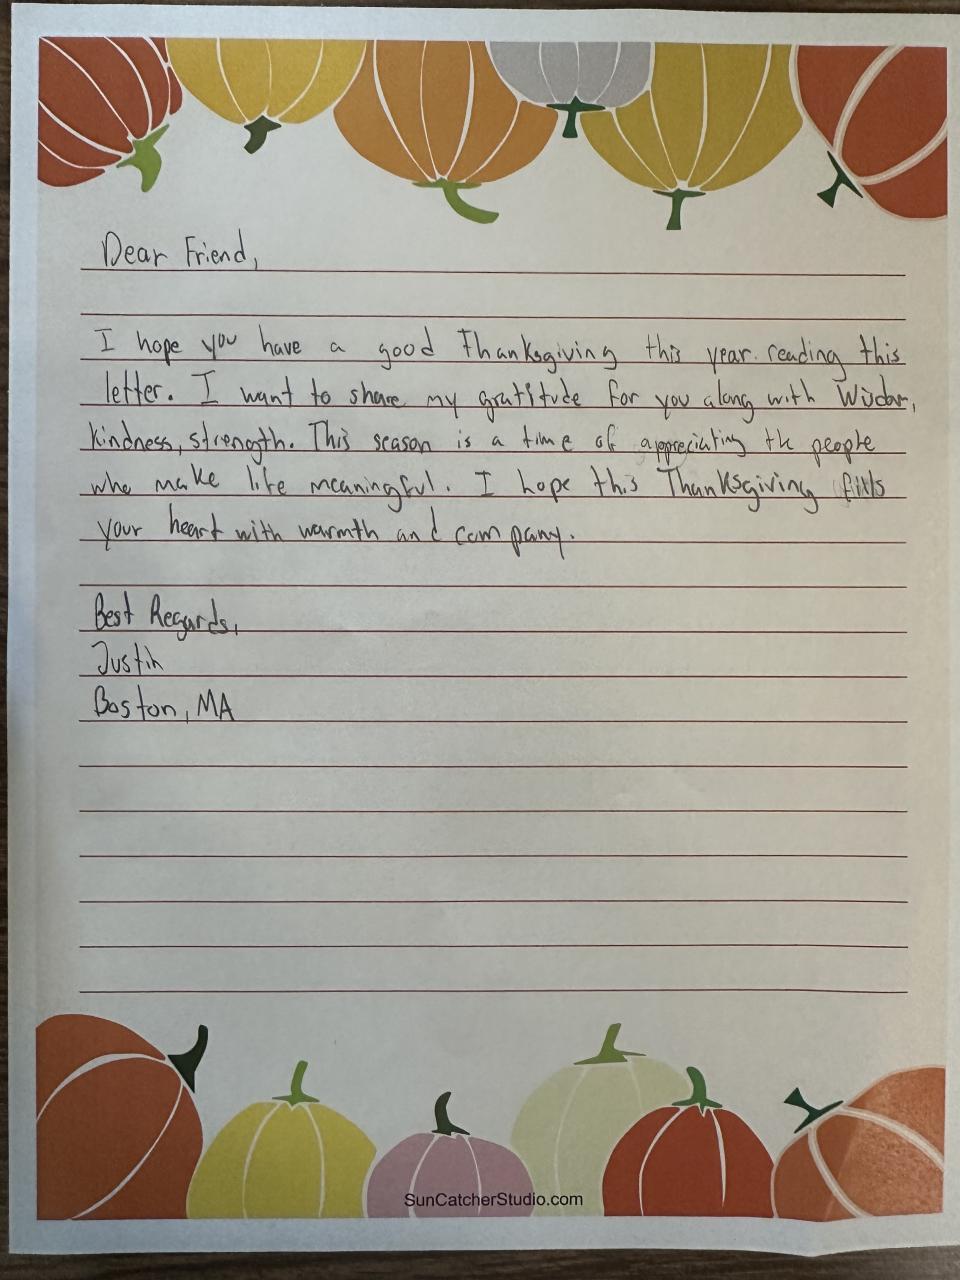 Dear Friend,
I hope you have a good Thanksgiving this year. reading this
letter. I want to share my gratitude for you along with Wisdom,
kindness, strength. This season is a time of appreciating the people
who make life meaningful. I hope this Thanksgiving fills
your heart with warmth and company.
Best Regards,
Justin
Boston, MA
SunCatcherStudio.com